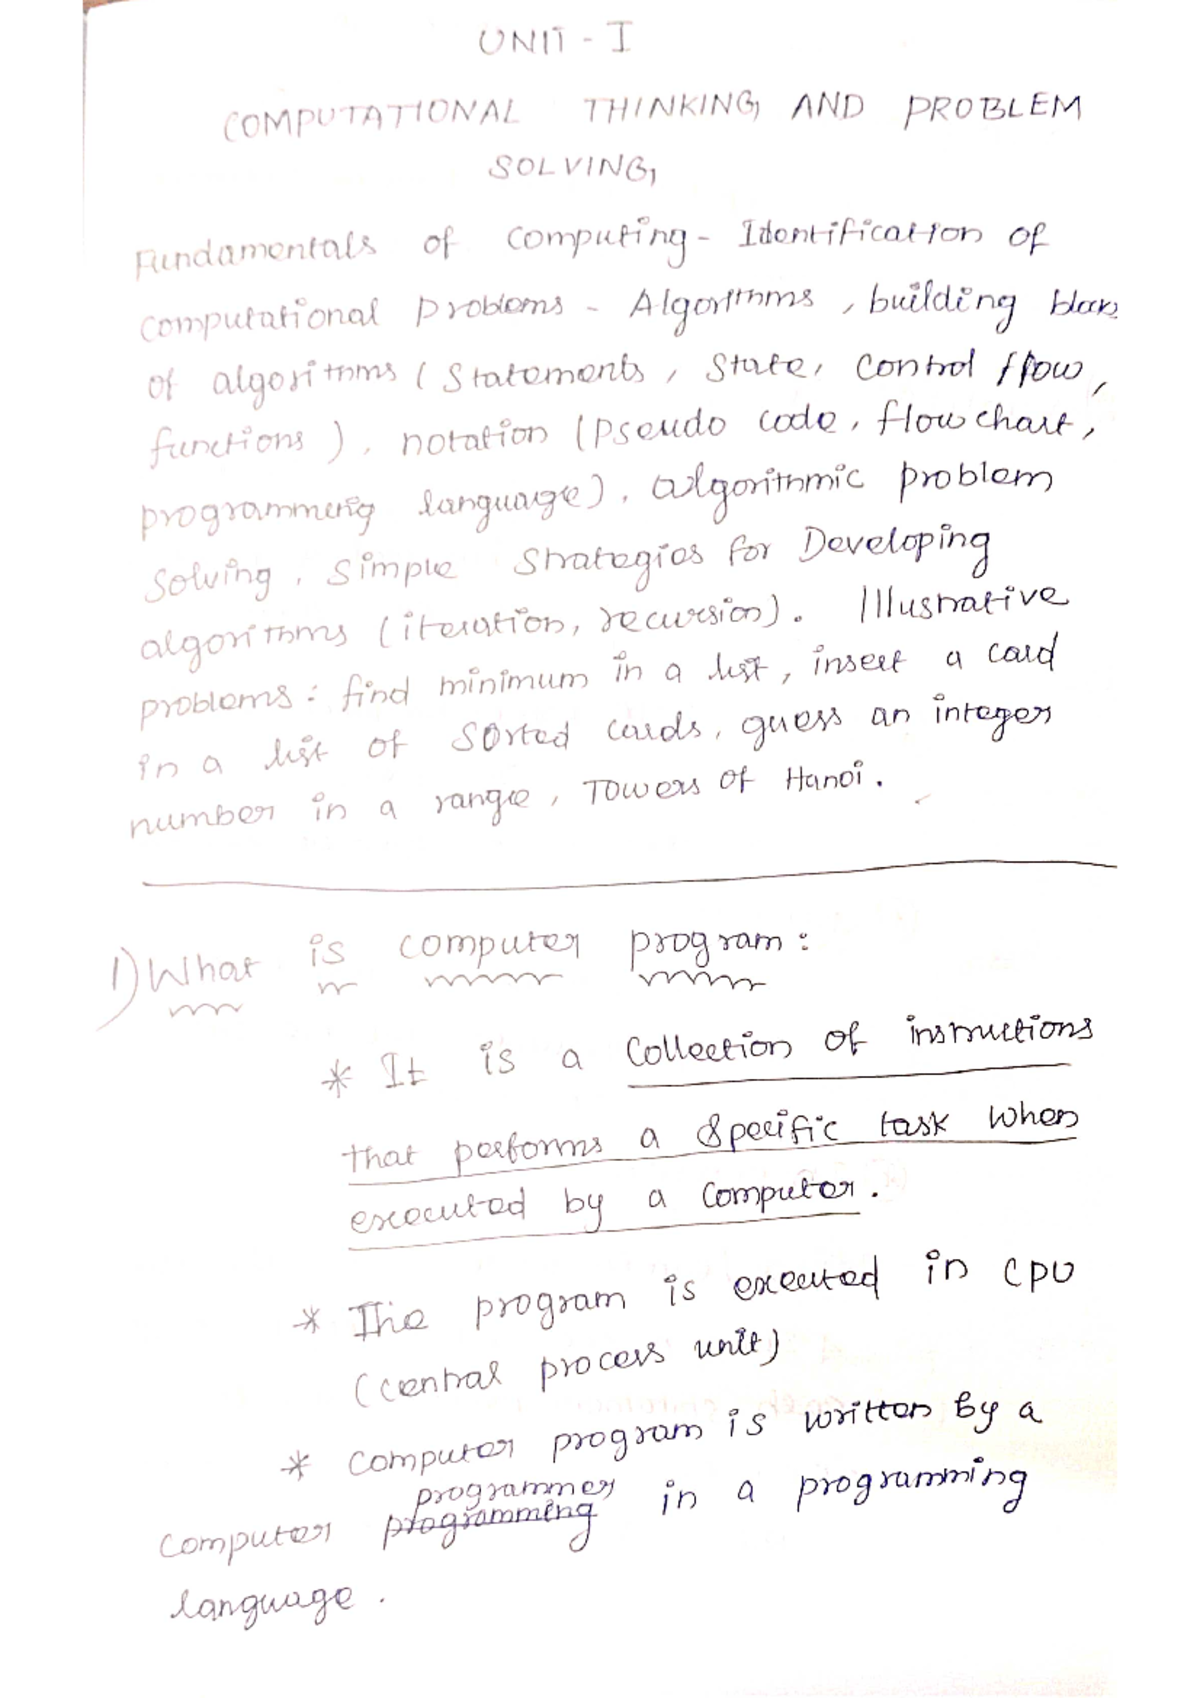 UNIT - I
COMPUTATIONAL THINKING AND PROBLEM
SOLVING
Fundamentals of Computing - Identification of
computational Problems - Algorithms , building blocks
of algorithms ( Statements , State, Control flow,
functions ) , notation (Pseudo code, flow chart,
programming language) , algorithmic problem
Solving , Simple Strategies for Developing
algorithms (iteration, recursion). Illustrative
problems : find minimum in a list , insert a card
in a list of Sorted cards, guess an integer
number in a range , Towers of Hanoi .
1) What is computer program :
* It is a Collection of instructions
that performs a Specific task when
executed by a Computer .
* The program is executed in CPU
(central process unit)
* Computer program is written By a
programmer
computer programming in a programming
language .